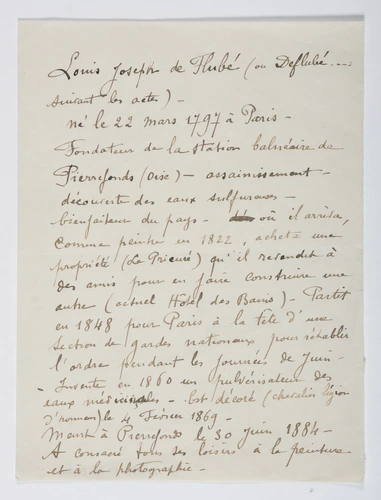 Louis Joseph de Flubé (ou Deflubé ...
suivant les actes) -
né le 22 mars 1797 à Paris -
Fondateur de la station balnéaire de
Pierrefonds (Oise) - assainissement -
découverte des eaux sulfureuses -
bienfaiteur du pays - où il arriva,
comme peintre en 1822, acheta une
propriété (Le Prieuré) qu'il revendit à
des amis pour en faire construire une
autre (actuel Hôtel des Bains) - Partit
en 1848 pour Paris à la tête d'une
section de gardes nationaux pour rétablir
l'ordre pendant les journées de juin -
Invente en 1860 un pulvérisateur des
eaux médicinales - Est décoré (chevalier légion
d'honneur) le 4 Février 1869 -
Meurt à Pierrefonds le 30 juin 1884 -
A consacré tous ses loisirs à la peinture
et à la photographie -